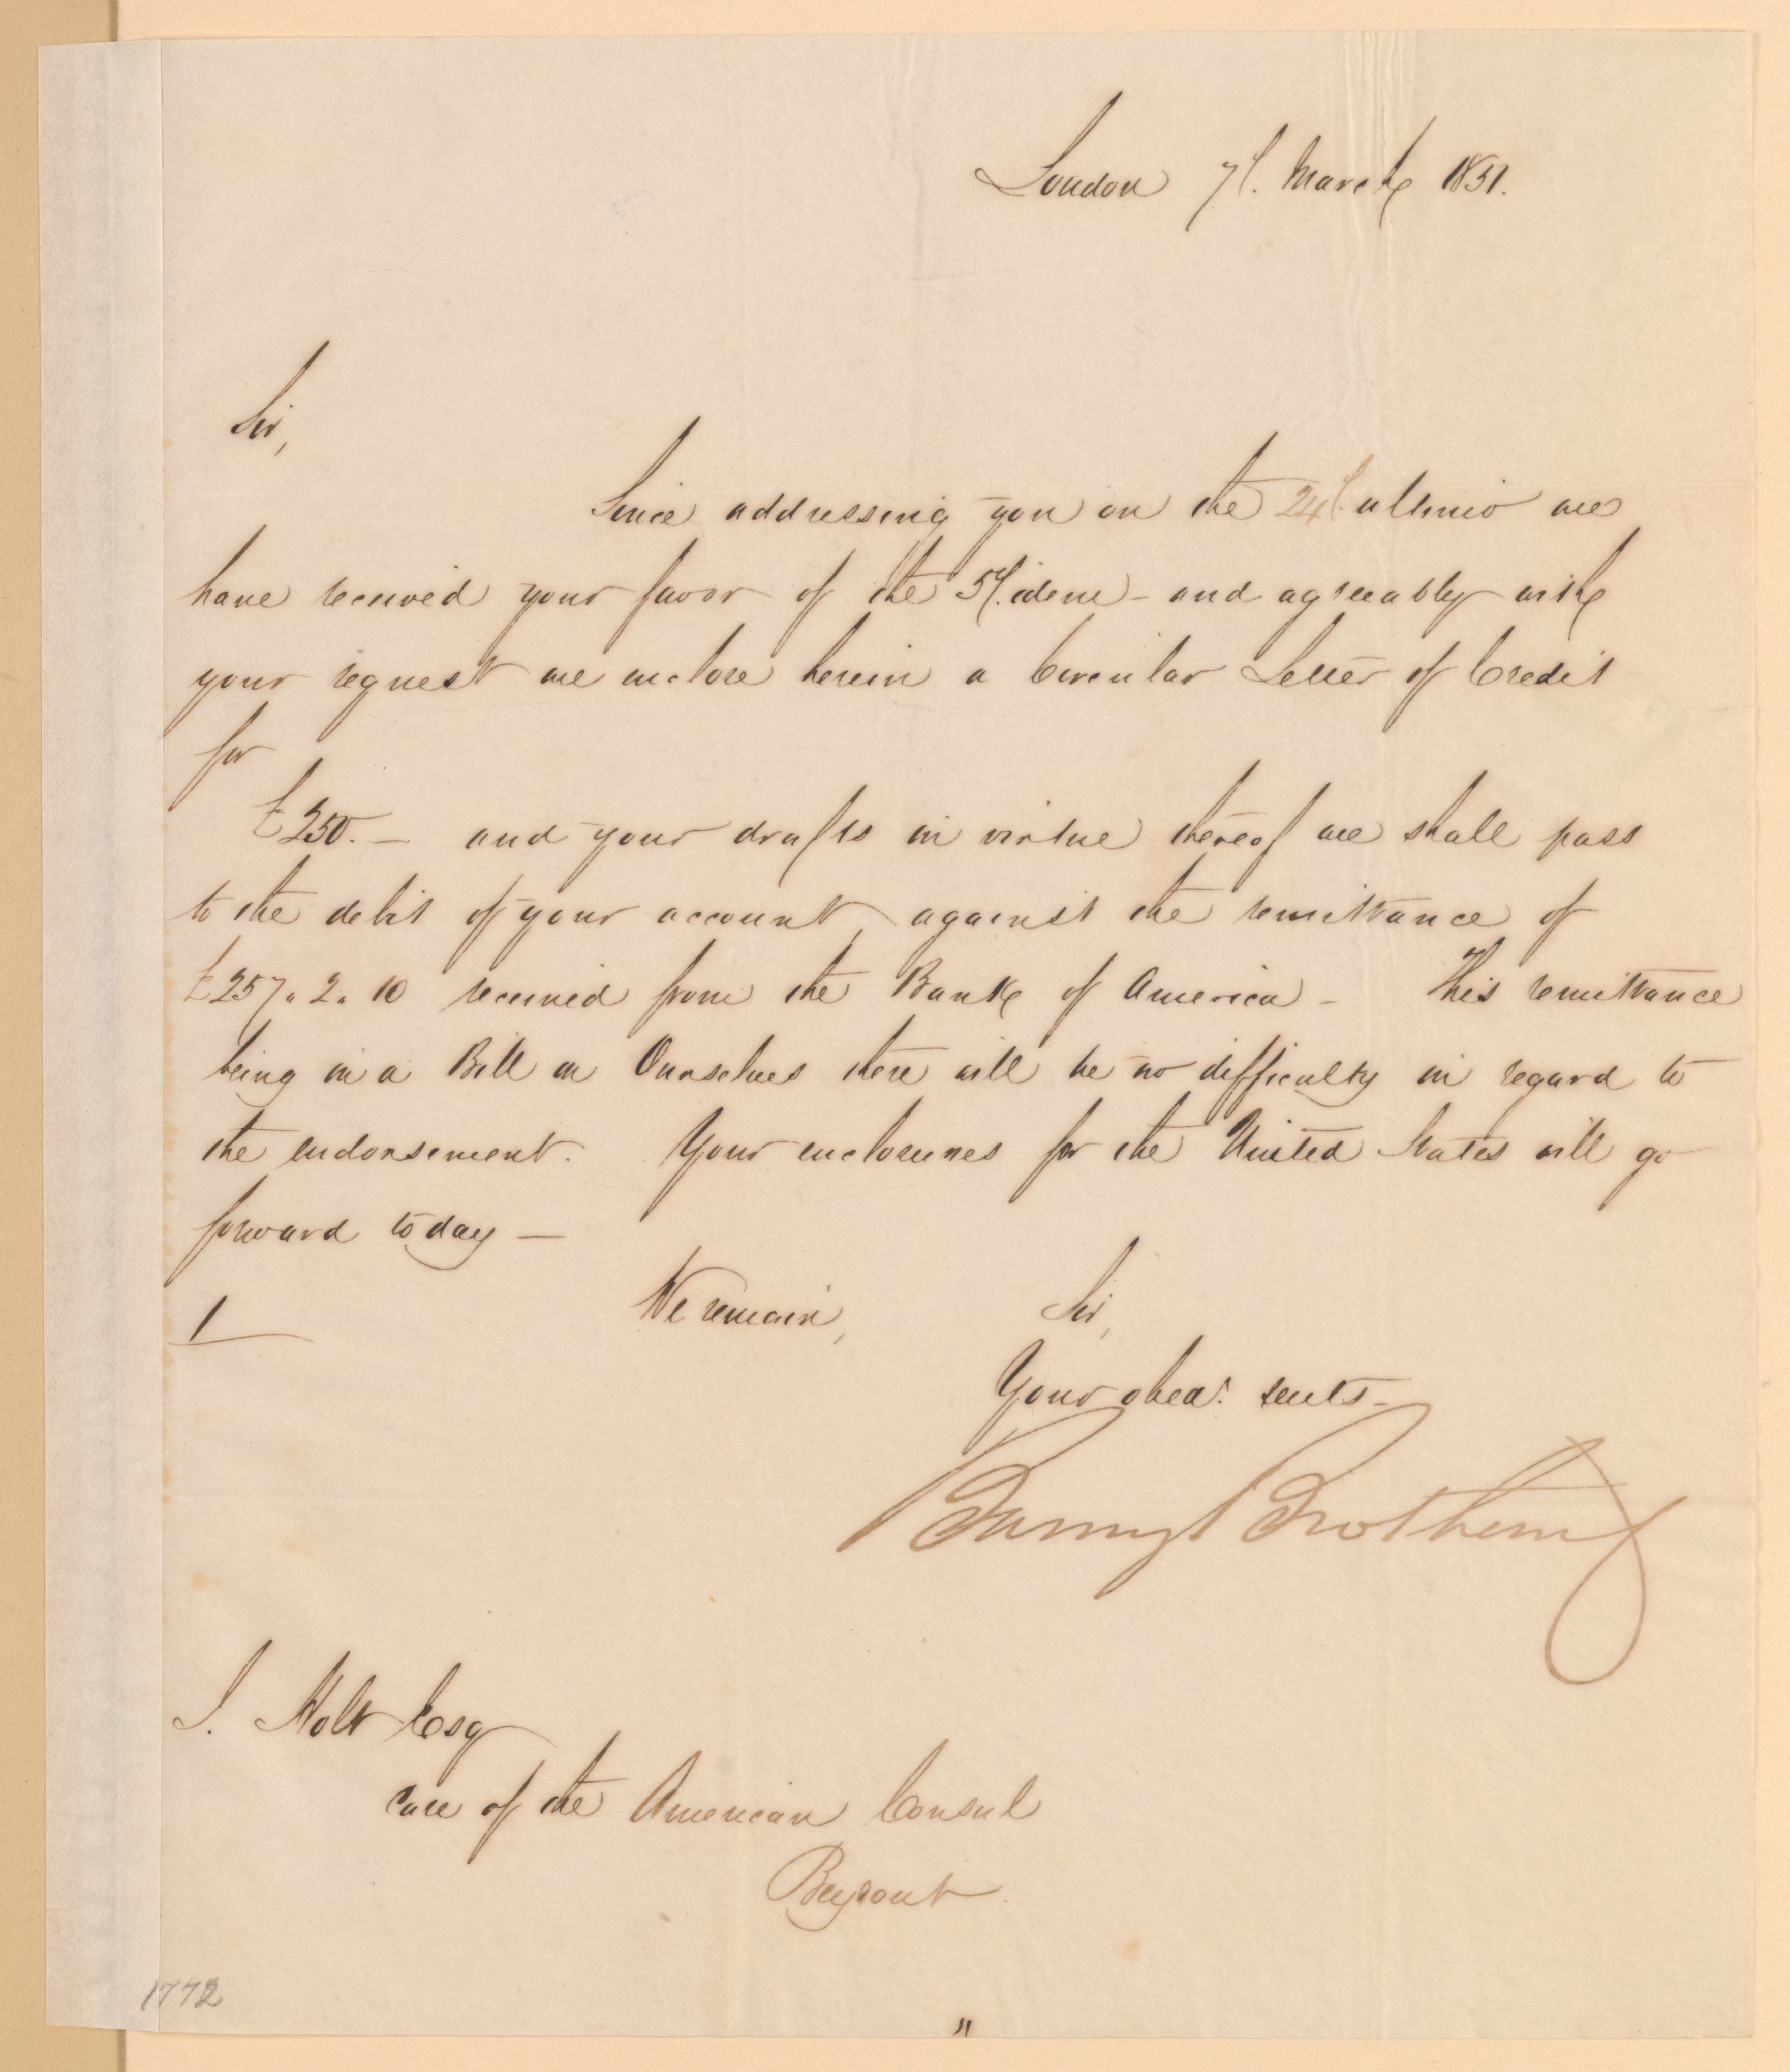 London 7th. March 1851.
Sir,
Since addressing you on the 24th. ultimo we
have received your favor of the 5th. idem - and agreeably with
your request we enclose herein a Circular Letter of Credit
for
£250. — and your drafts in virtue thereof we shall pass
to the debit of your account, against the remittance of
£257. 2. 10 received from the Bank of America - This remittance
being in a Bill on Ourselves there will be no difficulty in regard to
the endorsement. Your enclosures for the United States will go
forward to day —
1
We remain,
Sir,
Your obedt. servts.
Baring Brothers
J. Holt Esq
care of the American Consul
Beyrout
1772
"